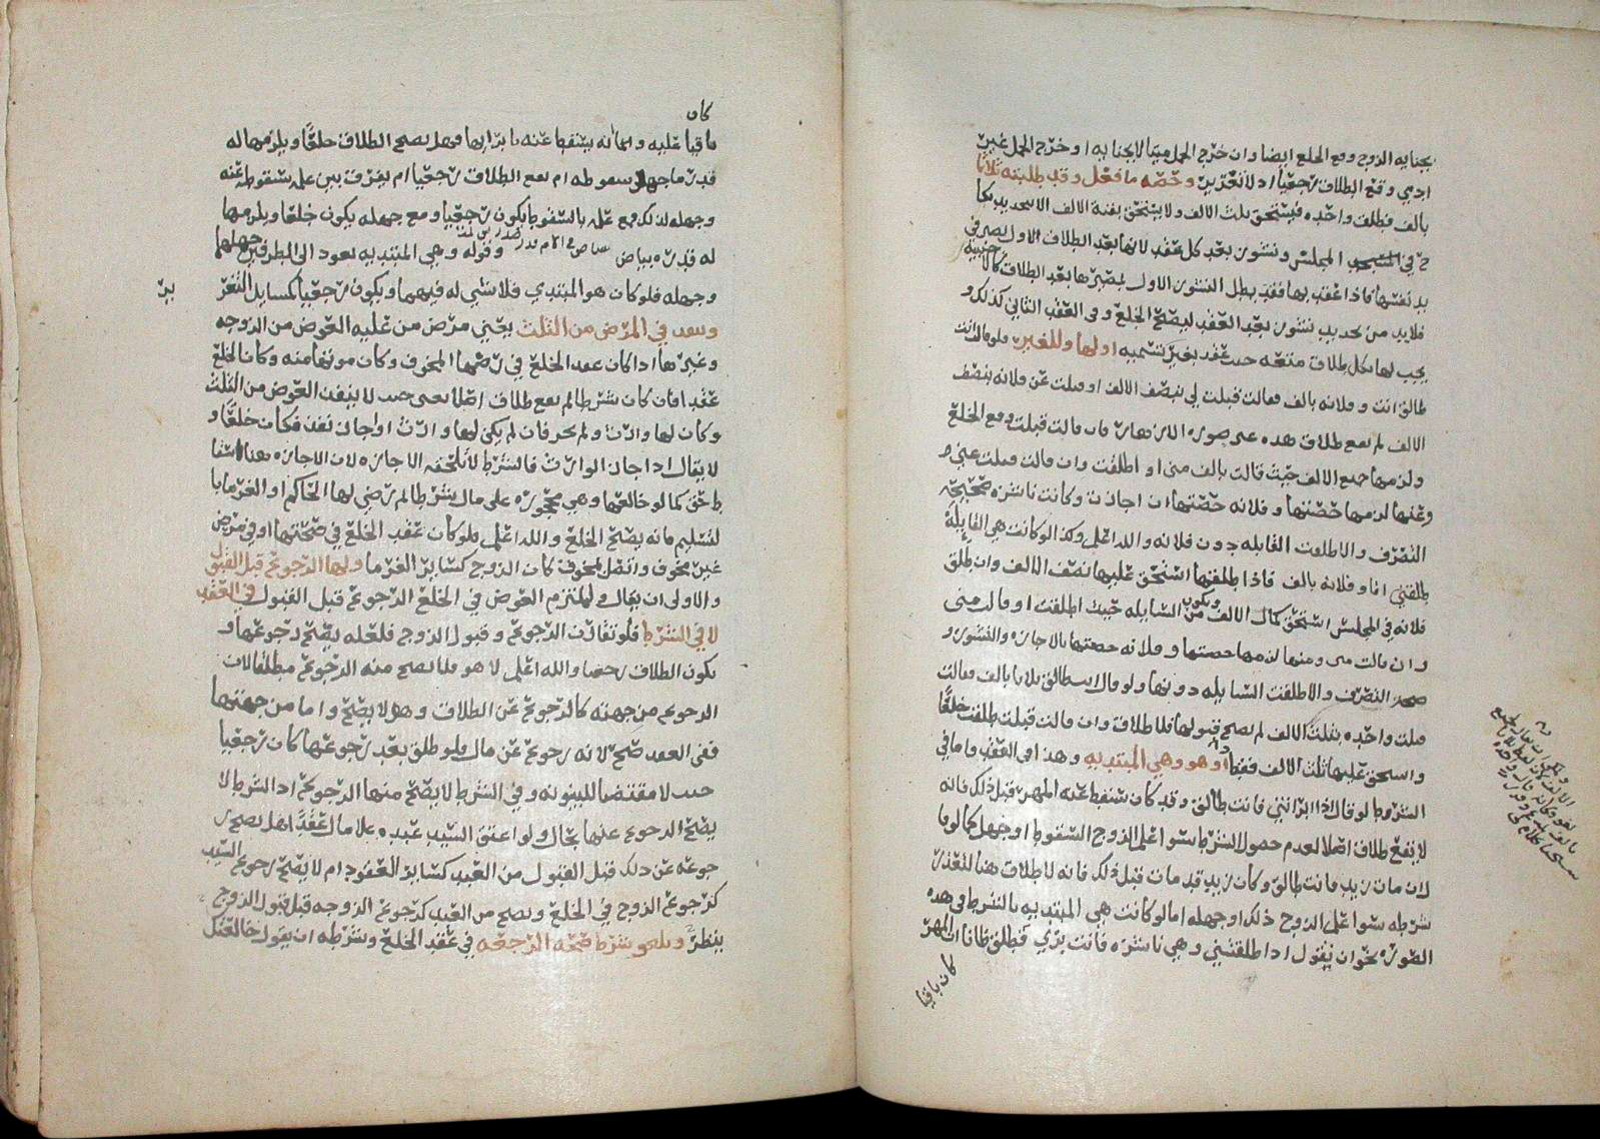 بجنايه الزوج وقع الخلع ايضا وان خرج الحمل ميتا لا بجنايه او خرج الحمل غير
ادمي وقع الطلاق رجعيا اذ لا تغرير وحصه ما فعل وقد طلبته ثلاثا
بالف فطلق واحده فيستحق ثلث الالف ولا يستحق بقية الالف الا بتجديد نكا
ح في المجلس ونشوز بعد كل عقد لانها بعد الطلاق الاول يصير في
يد نفسها فاذا عقد بها فقد بطل النشوز الاول لمصيرها بعد الطلاق كالاجنبية
فلابد من تجديد نشوز بعد العقد ليصح الخلع وفي العقد الثاني كذلك و
يجب لها بكل طلاق متعه حيث عقد بغير تسميه اولها وللغير ولو قال انت
طالق انت وفلانه بالف فقالت قبلت لي بنصف الالف او قبلت عن فلانه بنصف
الالف لم يقع طلاق هذه على صوره فان قالت قبلت وقع الخلع
ولزمها جميع الالف حيث قالت بالف مني او اطلقت وان قالت قبلت عني و
وعنها لزمها حصتها وفلانه حصتها ان اجازت وكانت ناشزه صحيحة
التصرف والا طلقت القابله دون فلانه والله اعلم وكذا لو كانت هي القايله
طلقني انا وفلانه بالف فاذا طلقها استحق عليها نصف الالف وان طلق
فلانه في المجلس استحق كمال الالف ويكون من السايله حيث اطلقت او قالت مني
وان قالت مني ومنها لزمها حصتها وفلانه حصتها بالاجازه والنشوز و
صحه التصرف والا طلقت السايله دونها ولو قال انت طالق ثلاثا بالف فقالت
قبلت واحده بثلث الالف لم يصح قبولها فلا طلاق وان قالت قبلت طلقت خلعًا
واستحق عليها ثلث الالف فقط او هو وهي المبتديه وهذا في العقد واما في
الشرط لو قال اذا ابراتني فانت طالق وقد كان سقط عنه المهر قبل ذلك فانه
لا يقع طلاق اصلا لعدم حصول الشرط سوا علم الزوج السقوط او جهل كما لو قا
ل ان مات زيد فانت طالق وكان زيد قد مات قبل ذلك فانه لا طلاق هنا لتعذر
شرطه سوا علم الزوج ذلك او جهله اما لو كانت هي المبتديه بالشرط في هذه
الصوره نحو ان يقول اذا طلقتني وهي ناشزه فانت بري فطلق ظانا ان المهر
كان باقيا
كان
باقيا عليه وانما انه يسقط عنه بابرايها فهل يصح الطلاق خلعًا ويلزمها له
قدر ما جهل سقوطه ام يقع الطلاق رجعيا ام يفرق بين علمه سقوطه عنه
وجهله لذلك فمع علمه بالسقوط يكون رجعيا ومع جهله يكون خلعا ويلزمها
له قدره بياض وقوله وهي المبتديه يعود الى الطرفين جهلها
وجهله فلو كان هو المبتدي فلا شي له فيهما ويكون رجعيا كمسايل التغر
ير
وينفذ في المرض من الثلث يعني مرض من عليه العوض من الزوجه
وغيرها اذا كان عقد الخلع في مرضها المخوف وكان موتها منه وكان الخلع
عقدا فان كان شرطا لم يقع طلاق اصلا يعني حيث لا ينفذ العوض من الثلث
وكان لها وارث ولم يجز فان لم يكن لها وارث او اجاز نفذ فكان خلعًا و
لا يقال اذا اجاز الوارث فالشرط لا تلحقه الاجازه لان الاجازه هنا اسقا
ط حق كما لو خالعها وهي محجوره على مال بشرط لم يرضى لها الحاكم او الغرما با
لتسليم فانه يصح الخلع والله اعلم فلو كان عقد الخلع في صحتها او في مرض
غير مخوف واتصل بمخوف كان الزوج كساير الغرما ولها الرجوع قبل القبول
والاولى ان يقال ولملتزم العوض في الخلع الرجوع قبل القبول في العقد
لا في الشرط فلو تقارن الرجوع وقبول الزوج فلعله يصح رجوعها و
يكون الطلاق رجعيا والله اعلم لا هو فلا يصح منه الرجوع مطلقا لان
الرجوع من جهته كالرجوع عن الطلاق وهو لا يصح واما من جهتها
ففي العقد صح لانه رجوع عن مال ولو طلق بعد رجوعها كان رجعيا
حيث لا مقتضا للبينونه وفي الشرط لا يصح منها الرجوع اذ الشرط لا
يصح الرجوع عنها بحال ولو اعتق السيد عبده على مال عقدًا هل يصح ر
جوعه عن ذلك قبل القبول من العبد كساير العقود ام لا يصح رجوع السيد
كرجوع الزوج في الخلع ويصح من العبد كرجوع الزوجه قبل قبول الزوج
ينظر ويلغو شرط صحه الرجعه في عقد الخلع وشرطه ان يقول خالعتك